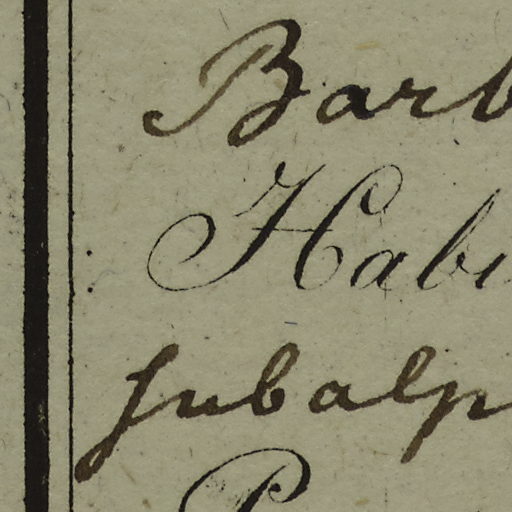 Barb
Hab
subalp
P